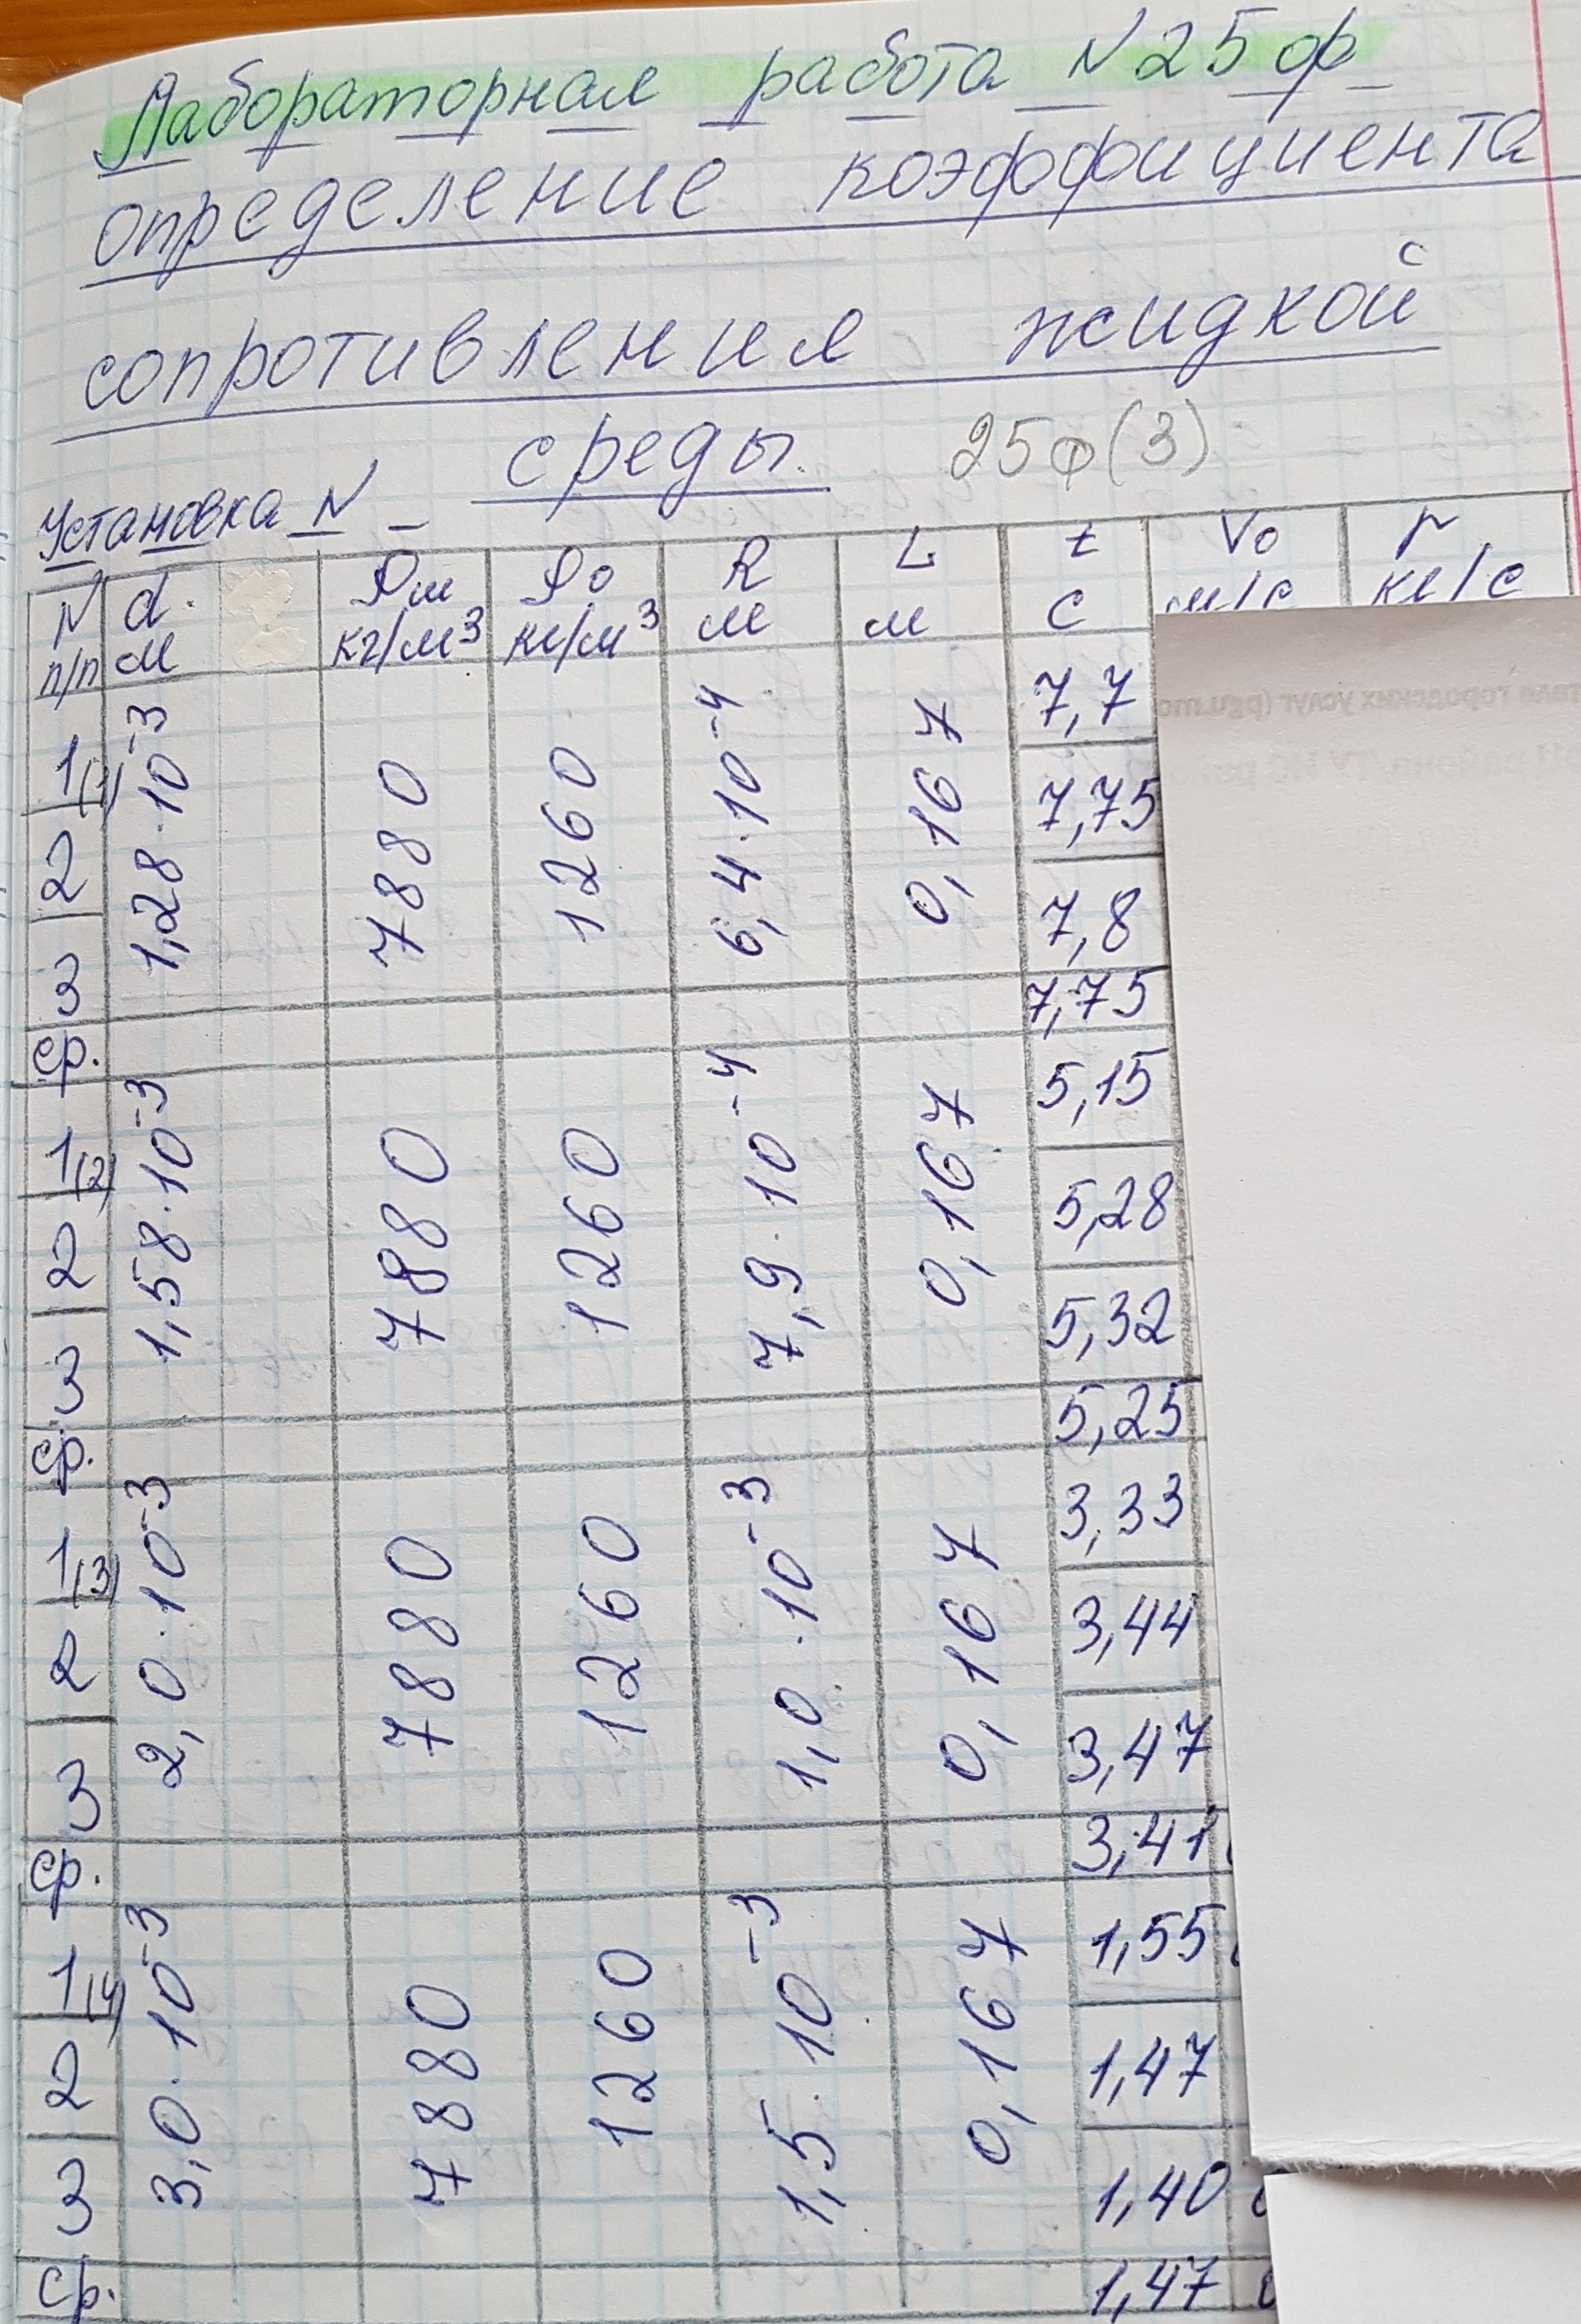 Лабораторная работа N 25ф
определение коэффициента
сопротивления жидкой
среды. 25ф(3)
Установка N _
N п/п d. м ρш кг/м³ ρо кг/м³ R м L м t с Vо м/с r кг/с
1(1) 1,28·10⁻³ 7880 1260 6,4·10⁻⁴ 0,167 7,7
2 7,75
3 7,8
ср. 7,75
1(2) 1,58·10⁻³ 7880 1260 7,9·10⁻⁴ 0,167 5,15
2 5,28
3 5,32
ср. 5,25
1(3) 2,0·10⁻³ 7880 1260 1,0·10⁻³ 0,167 3,33
2 3,44
3 3,47
ср. 3,41
1(4) 3,0·10⁻³ 7880 1260 1,5·10⁻³ 0,167 1,55
2 1,47
3 1,40
ср. 1,47